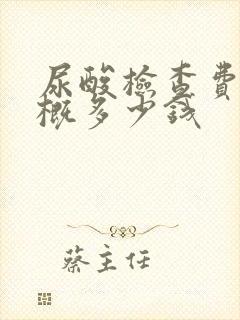 尿酸檢查費
概多少錢
蔡主任